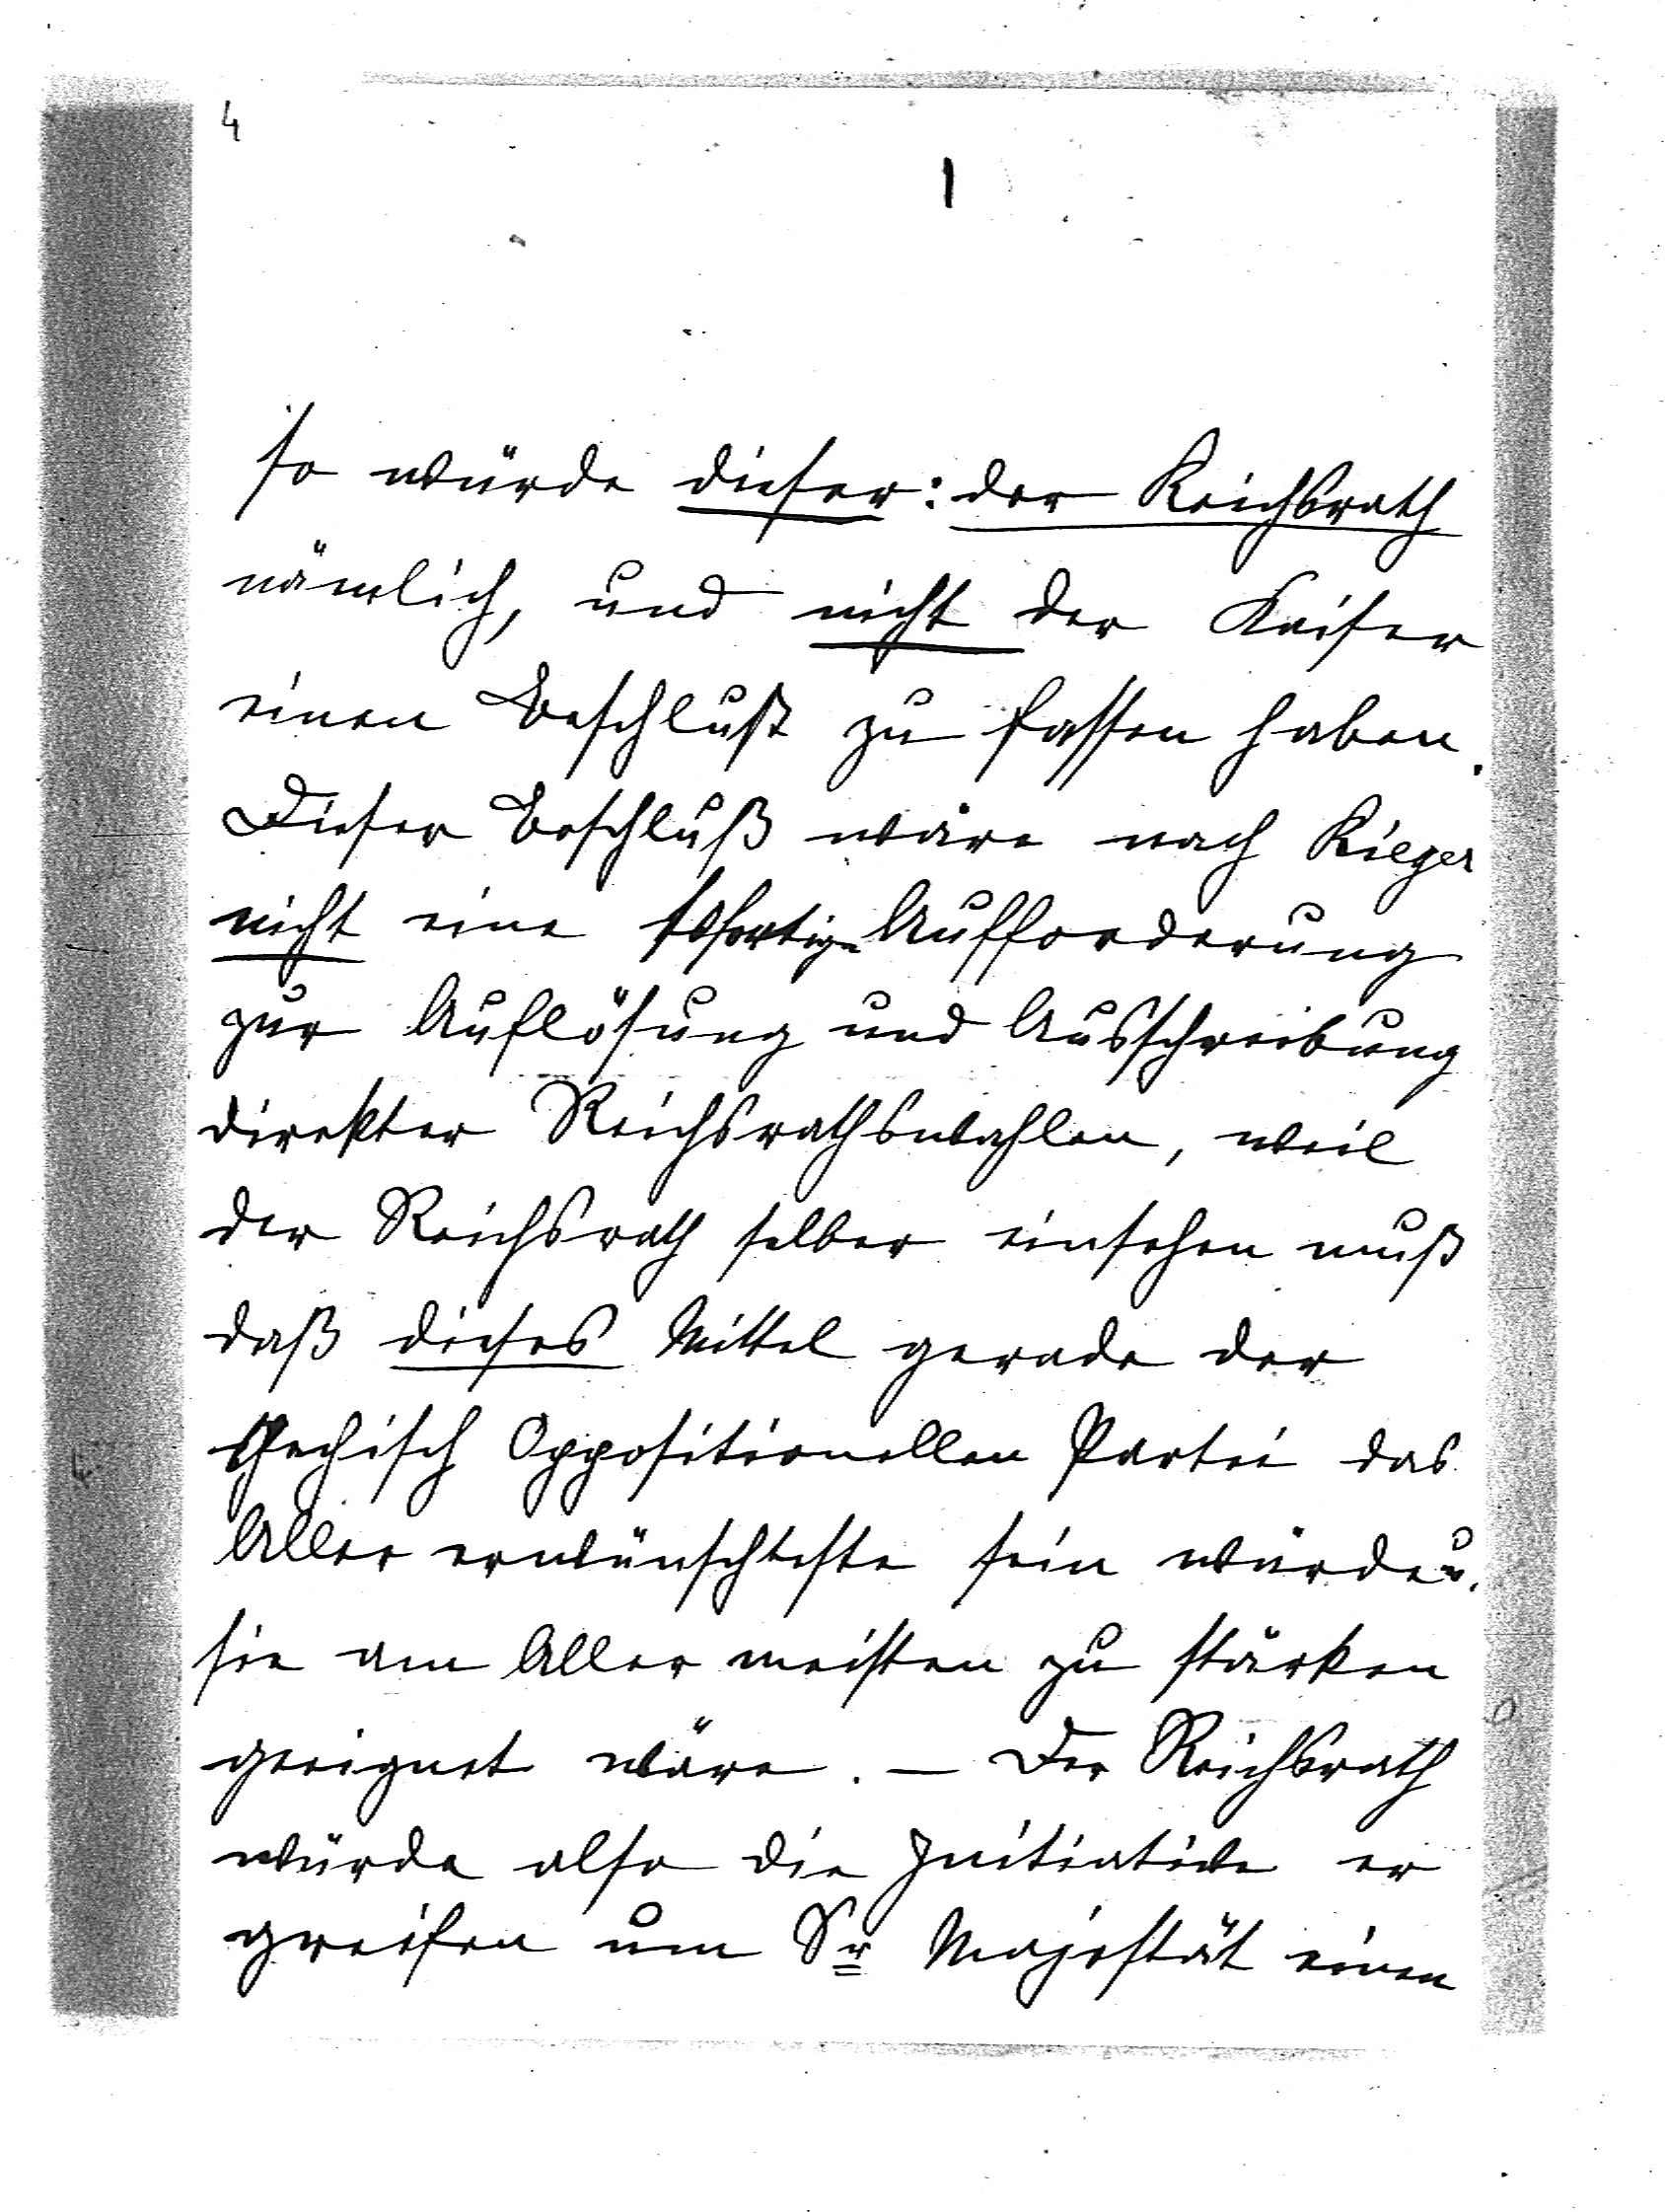 4
1
so würde dieser: der Reichsrath
nämlich, und nicht der Kaiser
einen Beschluß zu fassen haben.
Dieser Beschluß wäre nach Rieger
nicht eine sofortige Aufforderung
zur Auflösung und Ausschreibung
direkter Reichsrathswahlen, weil
der Reichsrath selber einsehen muß
daß dieses Mittel gerade der
Chechisch Oppositionellen Partei das
Aller erwünschteste sein würde u.
sie am Aller meisten zu stärken
geeignet wäre. — Der Reichsrath
würde also die Initiative er
greifen um Sr Majestät einen